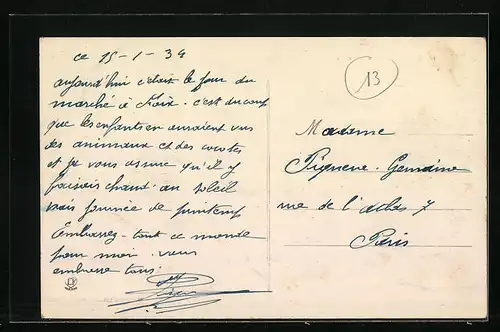 ce 15-1-34
aujourd'hui c'était le jour du
marché à c'est du coup
que les enfants en auraient vus
des animaux et des
et je vous assure qu'il y
faisait chaud au soleil
vrais journée de printemps
Embrassez tout ce monde
pour moi. vous
embrasse tous
13
Madame
Germaine
rue de l' 7
Paris